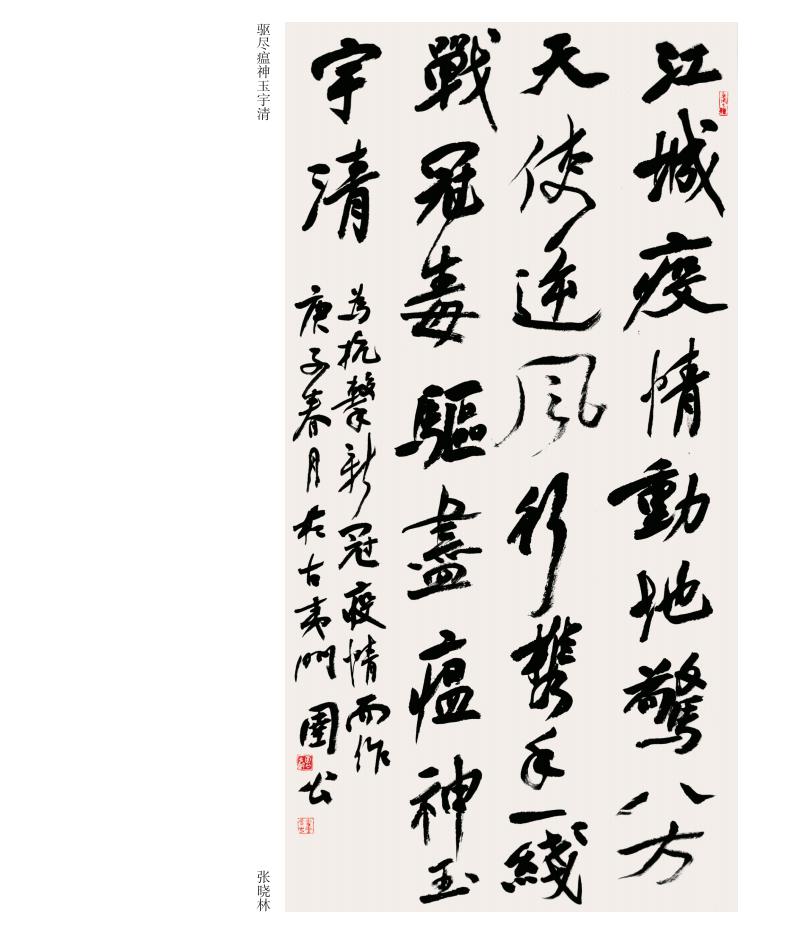 江城疫情動地驚八方
天使逆風行携手一綫
戰冠毒驅盡瘟神玉
宇清
為抗擊新冠疫情而作
庚子春月於古夷門圉公
驱尽瘟神玉宇清
张晓林